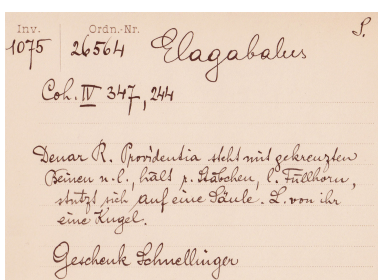 Inv. Ordn.-Nr. S.
1075 26564 Elagabalus
Coh. IV 347, 244
Denar R. Providentia steht mit gekreuzten
Beinen n. l., hält r. Stäbchen, l. Füllhorn,
stützt sich auf eine Säule. L. von ihr
eine Kugel.
Geschenk Schnellinger